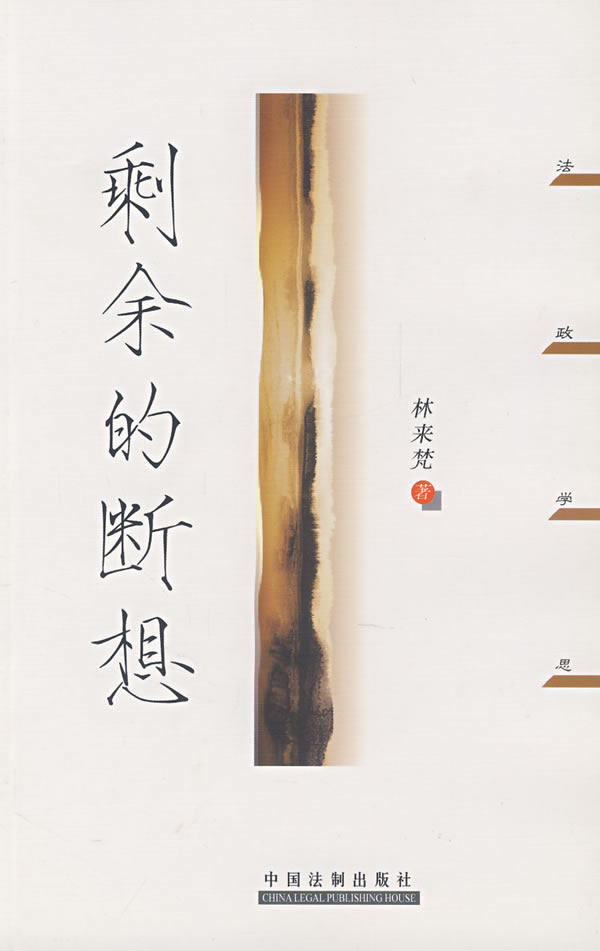 剩余的断想
林来梵 著
法政学思
中国法制出版社
CHINA LEGAL PUBLISHING HOUSE